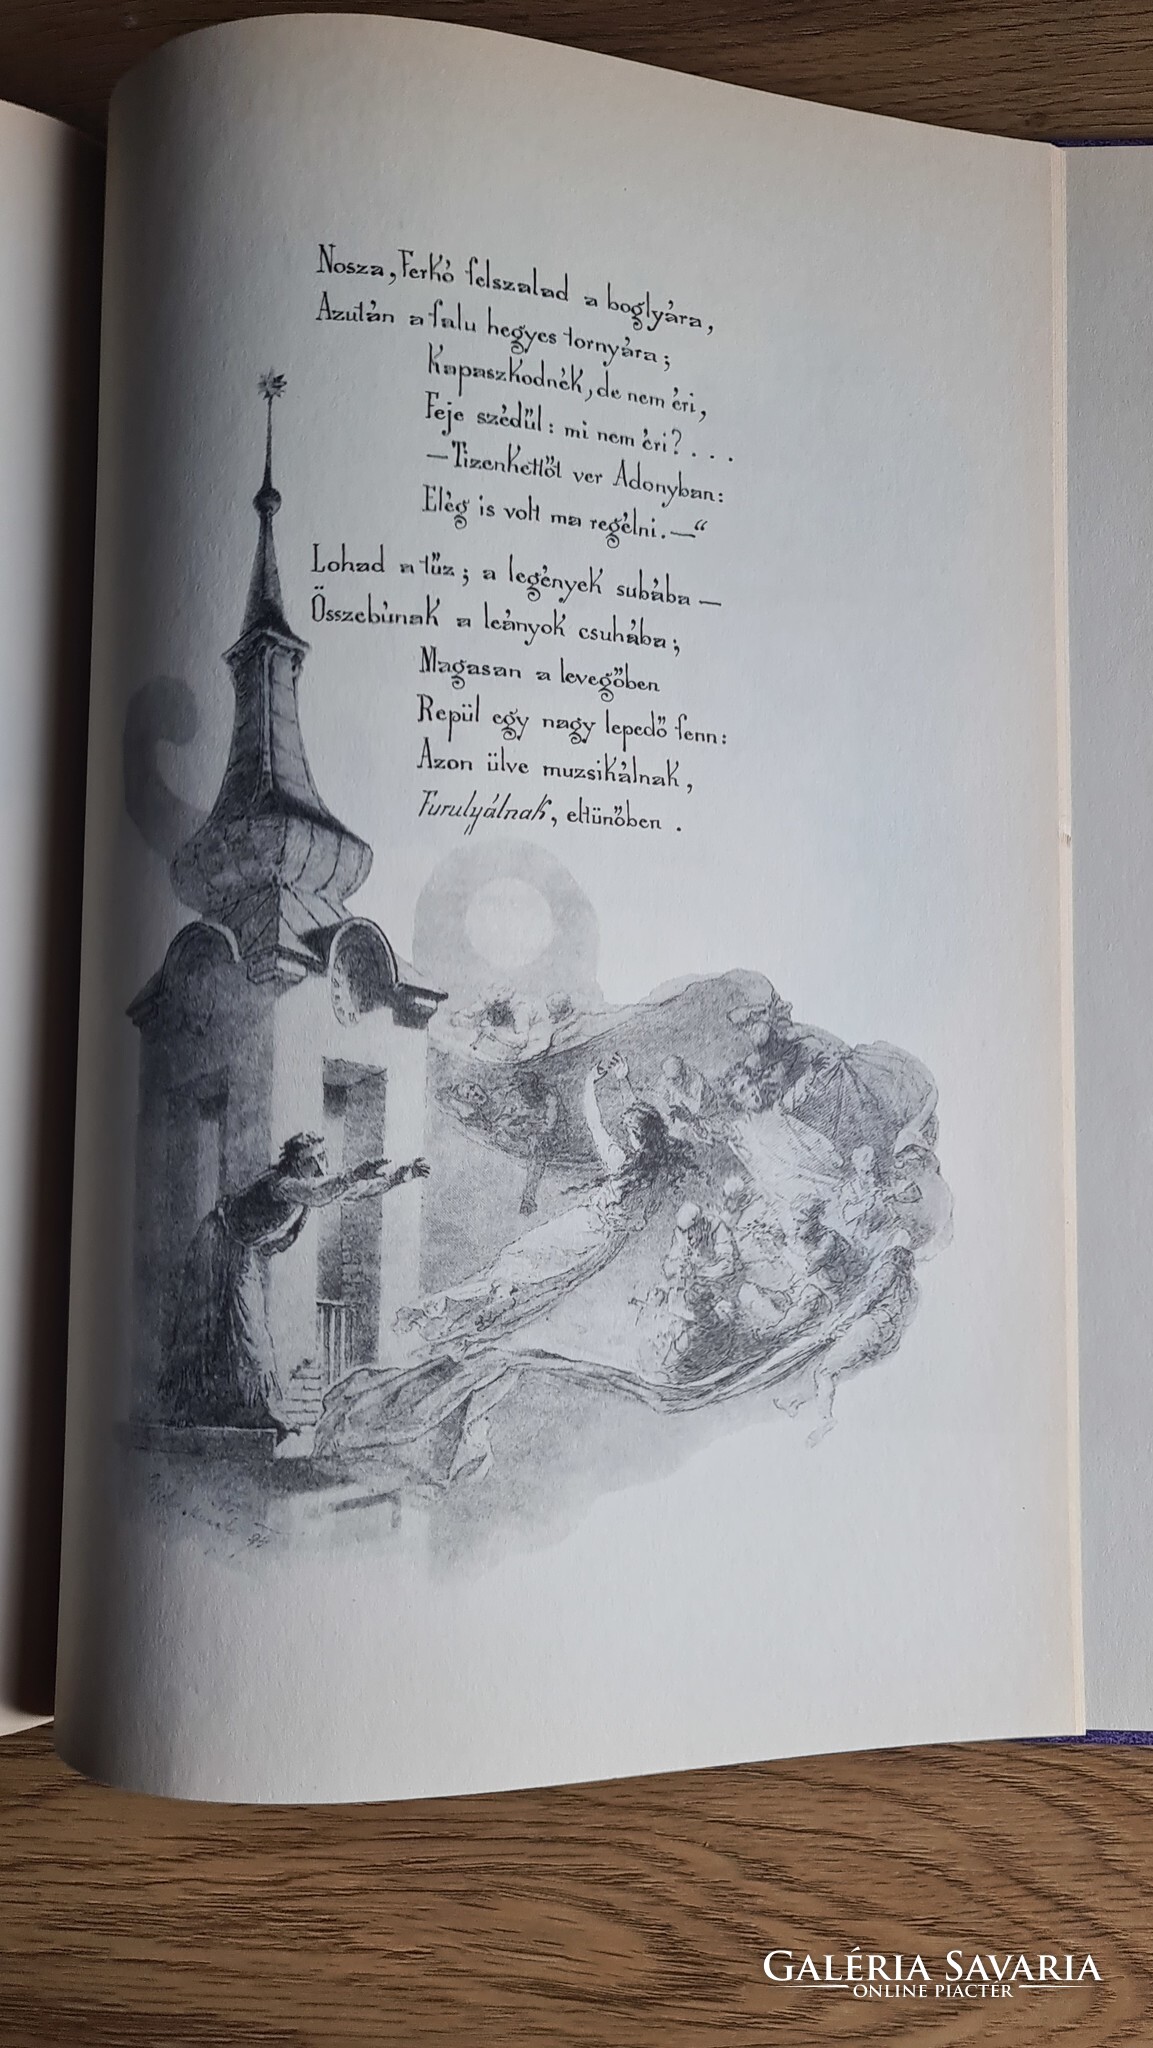 Nosza, Ferkó felszalad a boglyára,
Azután a falu hegyes tornyára;
Kapaszkodnék, de nem éri,
Feje szédűl: mi nem éri? . . .
—Tizenkettőt ver Adonyban:
Elég is volt ma regélni.—“
Lohad a tűz; a legények subába —
Összebúnak a leányok csuhába;
Magasan a levegőben
Repül egy nagy lepedő fenn:
Azon ülve muzsikálnak,
Furulyálnak, eltünőben .
GALÉRIA SAVARIA
ONLINE PIACTÉR